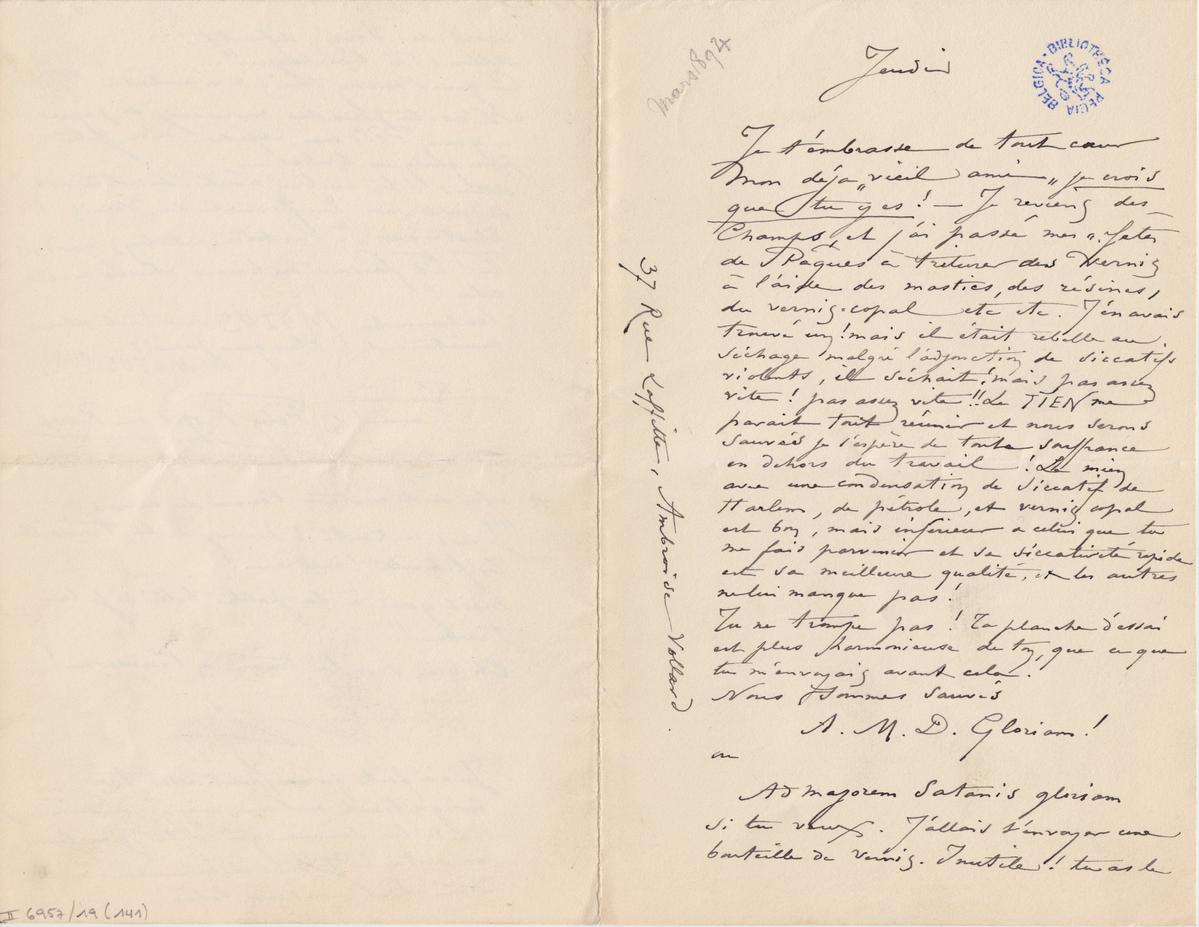 Mars 1894
Jeudi
BIBLIOTHECA REGIA BELGICA
Je t'embrasse de tout cœur
Mon déja „vieil ami„ je crois
que tu y es ! — Je reviens des
Champs, et j'ai passé mes „fêtes
de Pâques à triturer des Vernis
à l'aide des mastics, des résines,
du vernis-copal etc etc. J'en avais
trouvé un ! mais il était rebelle au
séchage malgré l'adjonction de siccatifs
violents, il séchait ! mais pas assez
vite ! pas assez vite !! Le TIEN me
parait tout réunir et nous serons
sauvés je l'espère de toute souffrance
en dehors du travail ! Le mien
avec une condensation de Siccatif de
Harlem, de pétrole, et vernis copal
est bon, mais inférieur a celui que tu
me fais parvenir et sa siccativité rapide
est sa meilleure qualité, et les autres
ne lui manque pas !
Tu ne trompe pas ! Ta planche d'essai
est plus harmonieuse de ton, que ce que
tu m'envoyais avant cela.
Nous sommes sauvés
A. M. D. Gloriam !
ou
Ad majorem Satanis gloriam
si tu veux. J'allais t'envoyer une
bouteille de vernis. Inutile ! tu as le
37 Rue Laffitte, Ambroise Vollard.
II 6957/19 (141)